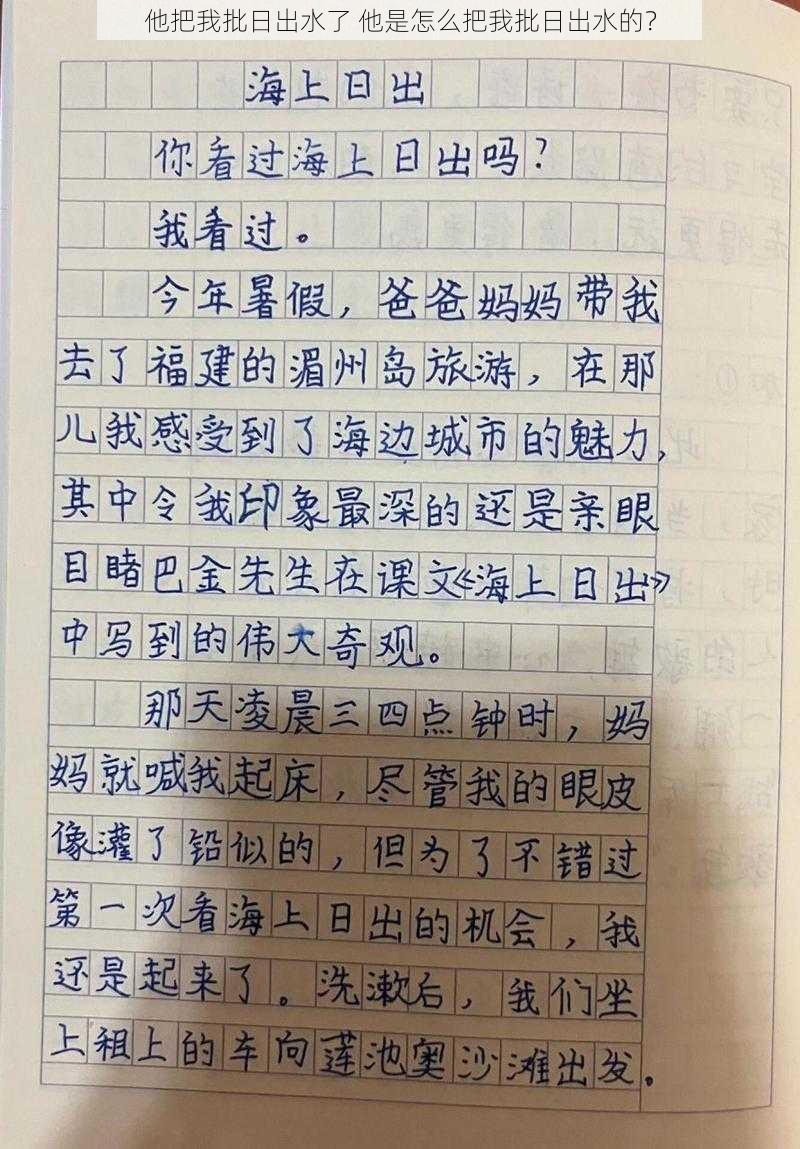 他把我批日出水了 他是怎么把我批日出水的？
海上日出
你看过海上日出吗？
我看过。
今年暑假，爸爸妈妈带我
去了福建的湄州岛旅游，在那
儿我感受到了海边城市的魅力，
其中令我印象最深的还是亲眼
目睹巴金先生在课文《海上日出》
中写到的伟大奇观。
那天凌晨三四点钟时，妈
妈就喊我起床，尽管我的眼皮
像灌了铅似的，但为了不错过
第一次看海上日出的机会，我
还是起来了。洗漱后，我们坐
上租上的车向莲池奥沙滩出发。